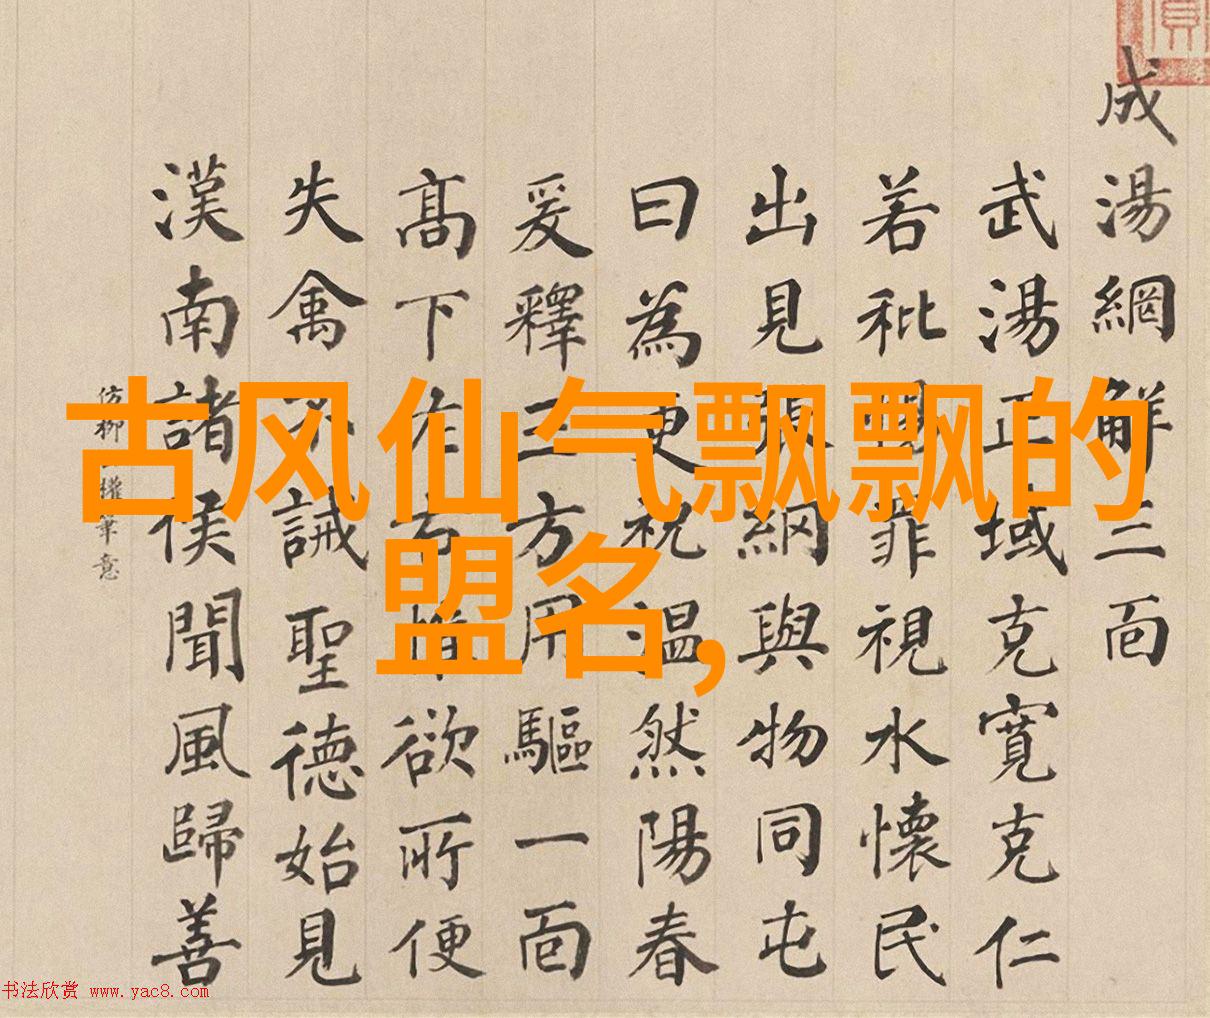 古风仙气飘飘的
盟名,
成湯網觧三靣
武湯正域克寬克仁
若秕罪視水懷民
出見張網與物同屯
曰為更祝溫然陽春
爰釋三方用驅一靣
高下作右惟欲所便
失禽不誡聖德始見
漢南諸侯聞風歸善
仿柳權筆意
书法欣赏 www.yac8.com